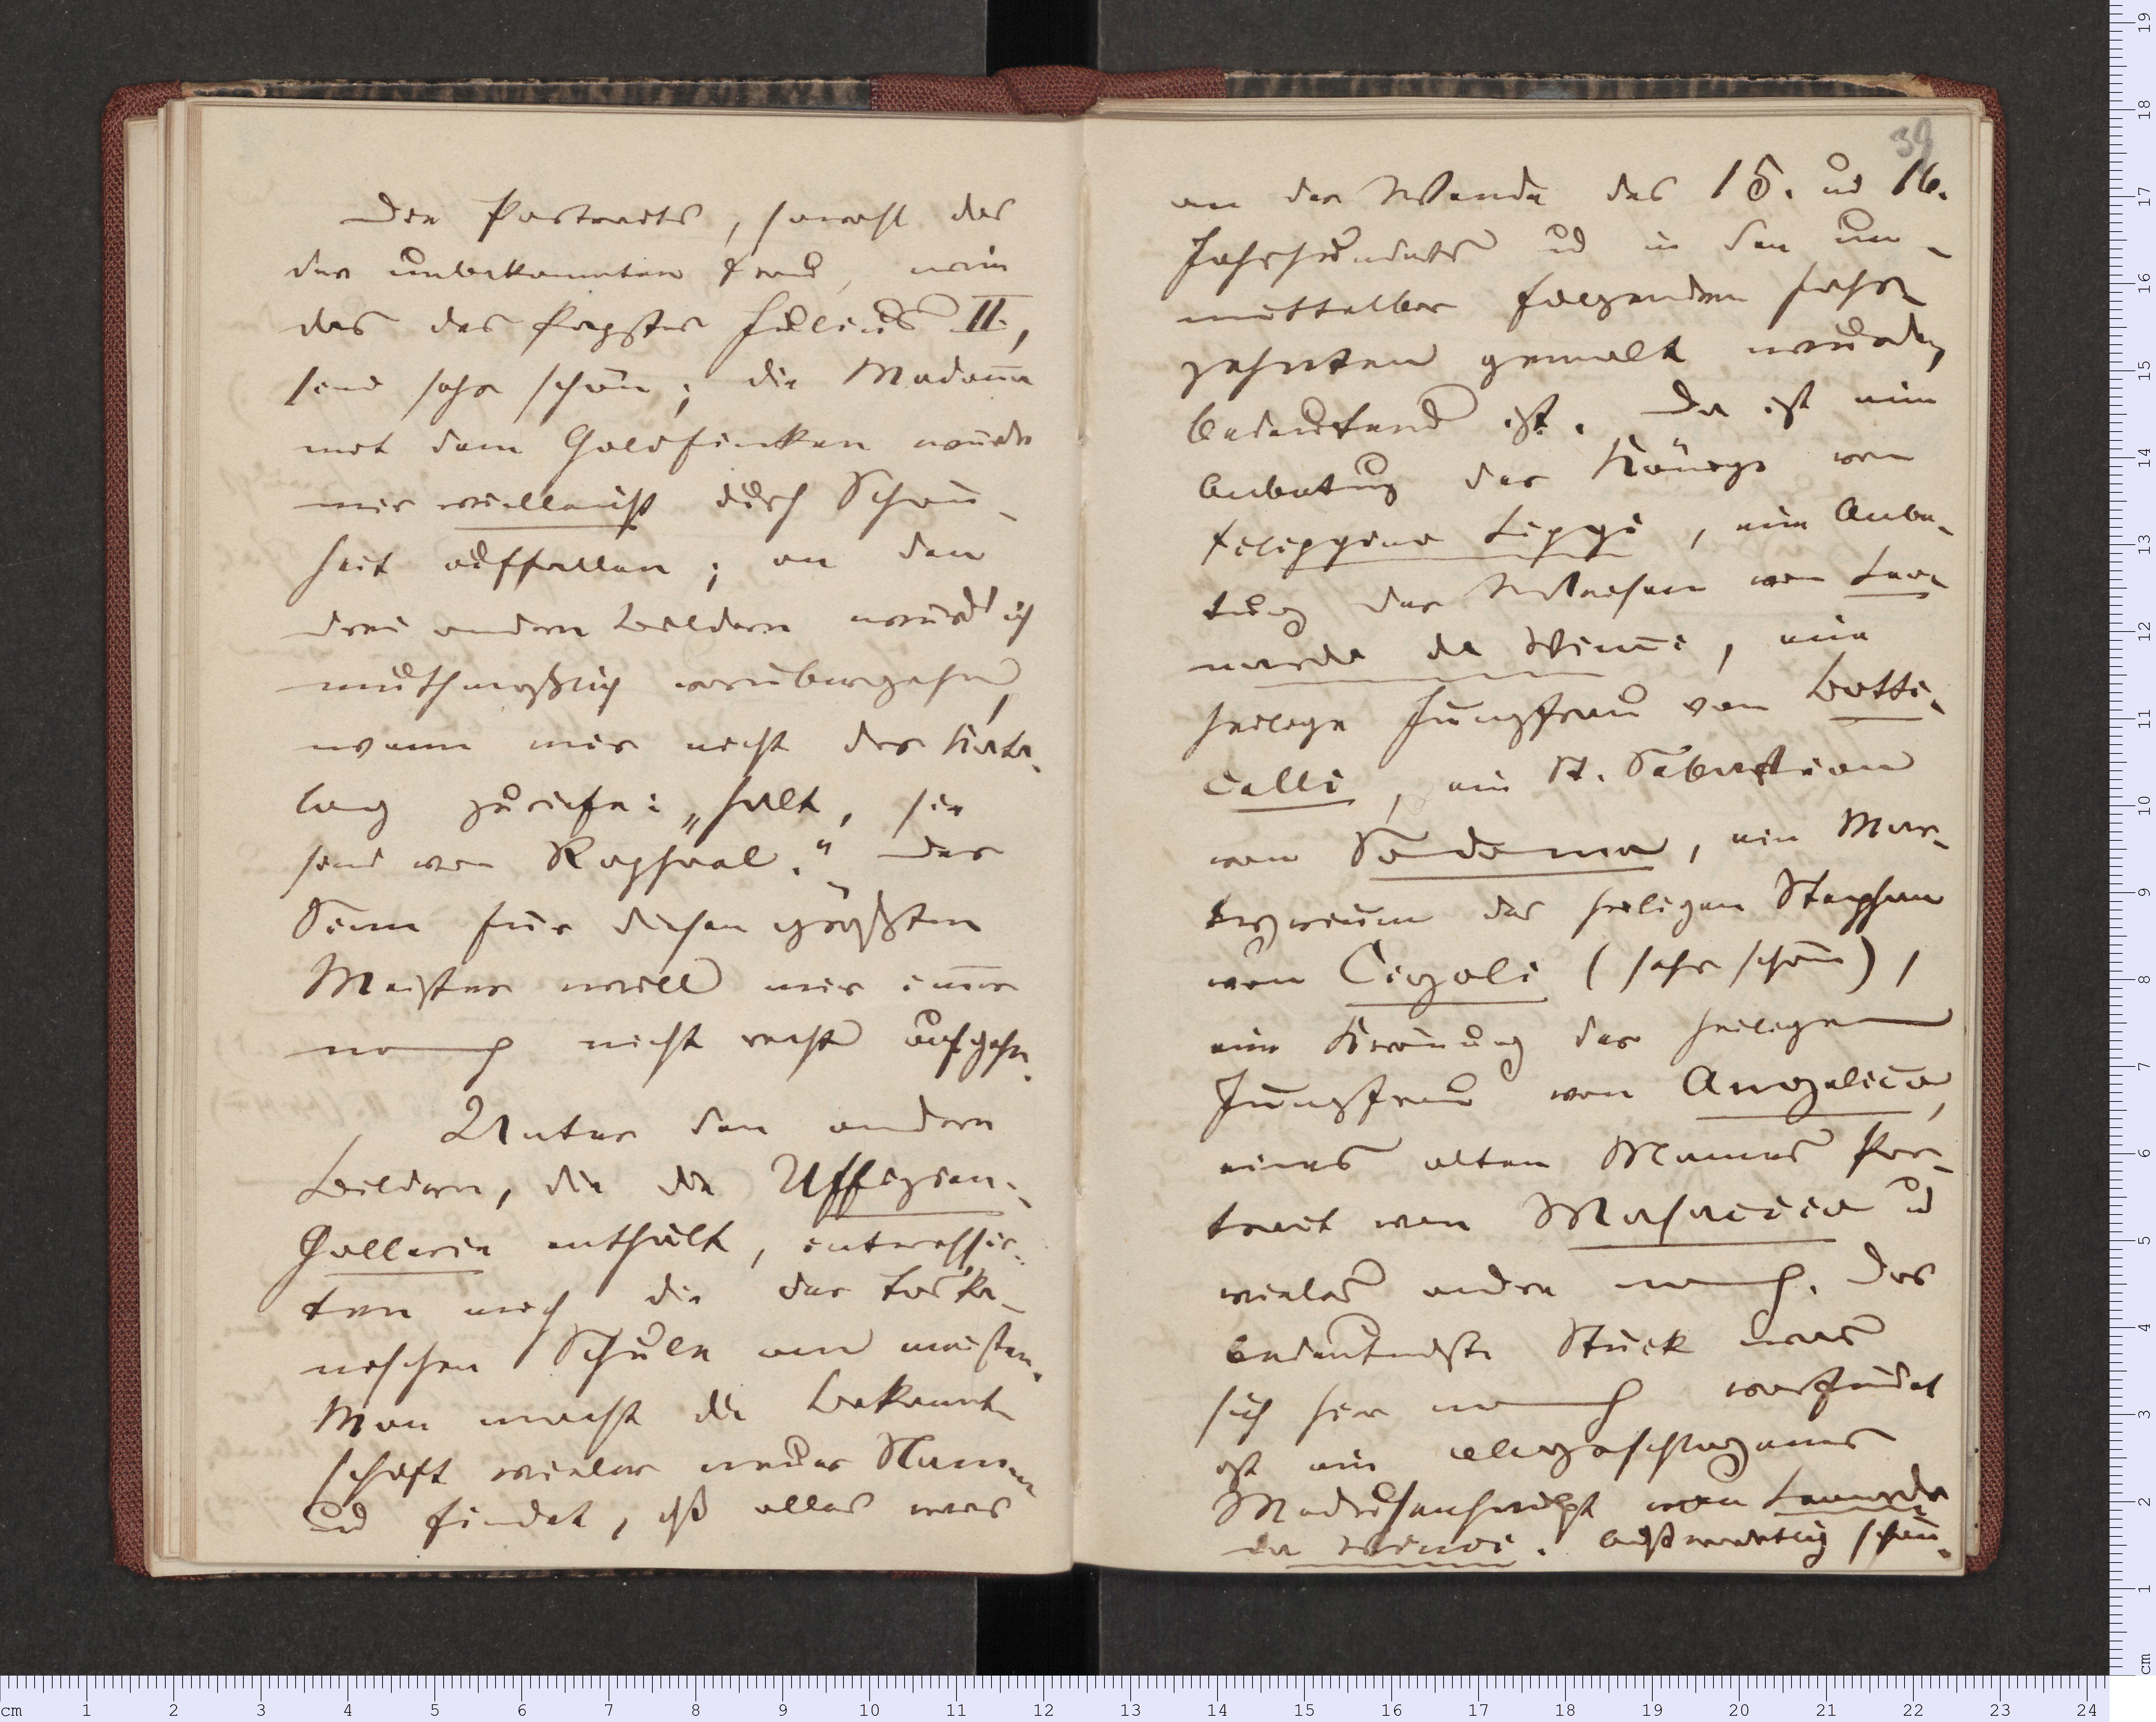 Die Portraits, sowohl das
der unbekannten Frau, wie
das des Papstes Julius II.,
sind sehr schön; die Madoña
mit dem Goldfinken würde
mir vielleicht durch Schön-
heit auffallen; an den
drei andern Bildern würd' ich
muthmaßlich vorübergehn,
wenn mir nicht der Kata-
log zuriefe: „halt, sie
sind von Raphael." Der
Sinn für diesen größten
Meister will mir im̄er
noch nicht recht aufgehn.
Unter den andern
Bildern, die die Uffizien-
Gallerie enthält, interessir-
ten mich die der toska-
nischen Schule am meisten.
Man macht die Bekannt-
schaft vieler neuer Namen
und findet, daß alles was
39
an der Wende des 15. ud 16.
Jahrhunderts ud in den un-
mittelbar folgenden Jahr-
zehnten gemalt wurde,
bedeutend ist. Da ist eine
Anbetung der Könige von
Filippino Lippi, eine Anbe-
tung der Weisen von Leo-
nardo da Vinci, eine
heilige Jungfrau von Botti-
celli, ein St. Sebastian
von Sodoma, ein Mar-
tyrium des heiligen Stephan
von Cigoli (sehr schön),
eine Krönung der heiligen
Jungfrau von Angelico,
eines alten Mannes Por-
trait von Masaccio ud
vieles andre noch. Das
bedeutendste Stück was
sich hier noch vorfindet
ist ein abgeschlagenes
Medusenhaupt von Leonardo
da Vinci. Außerordentlich schön.